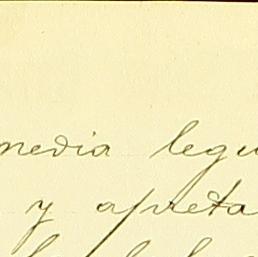 media legu
y apreta